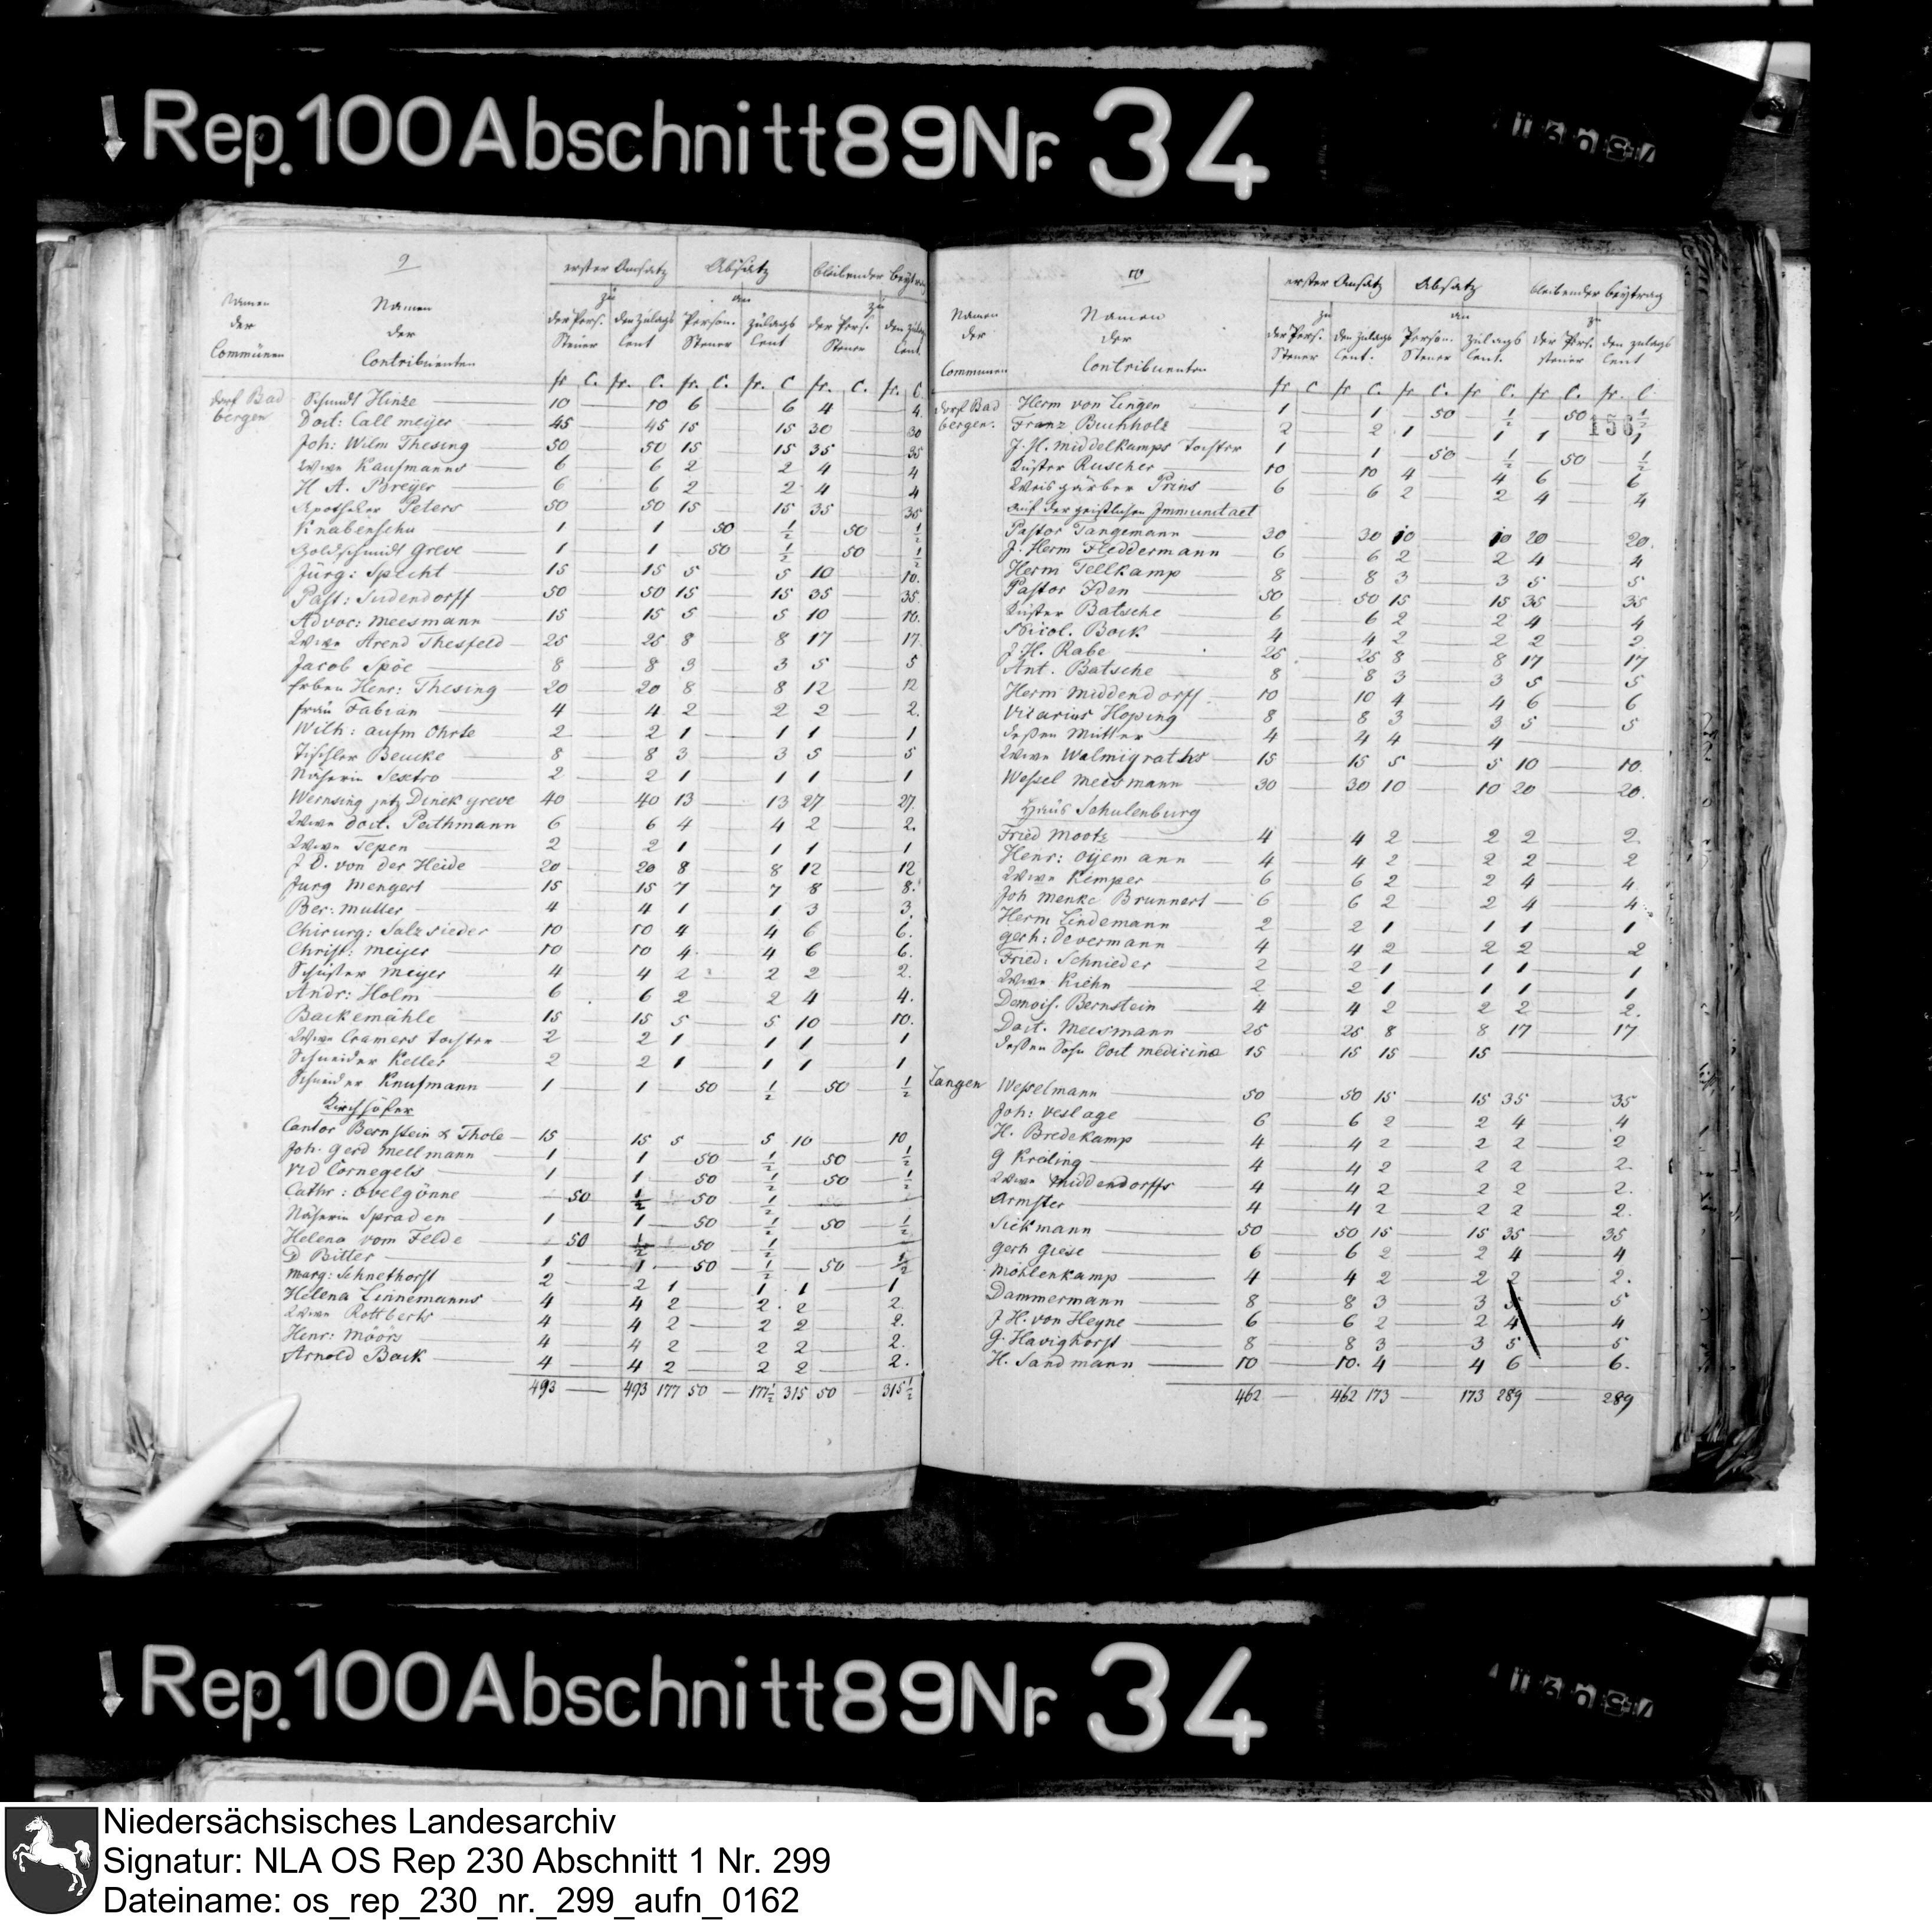 Rep. 100 Abschnitt 89 Nr. 34
9
Namen der Communen
Namen der Contribuenten
erster Ansatz
Absatz
bleibender Beytrag
zu
an
zu
der Pers. Steuer
den Zulags Cent
Person. Steuer
Zulags Cent
der Pers. Steuer
den Zulags Cent.
fr C. fr. C. fr. C. fr. C fr. C. fr. C
Dorf Badbergen
Schmidt Hinze 10 10 6 6 4 4
Doct: Callmeyer 45 45 15 15 30 30
Joh: Wilm Thesing 50 50 15 15 35 35
Wwe Kaufmanns 6 6 2 2 4 4
H A. Breyer 6 6 2 2 4 4
Apotheker Peters 50 50 15 15 35 35
Knabenschu 1 1 50 1/2 50 1/2
Goldschmidt Greve 1 1 50 1/2 50 1/2
Jürg: Specht 15 15 5 5 10 10.
Past: Sudendorff 50 50 15 15 35 35.
Advoc: Meesmann 15 15 5 5 10 10.
Wwe Arend Thesfeld 25 25 8 8 17 17.
Jacob Spöe 8 8 3 3 5 5
Erben Henr: Thesing 20 20 8 8 12 12
Frau Fabian 4 4 2 2 2 2.
Wilh: aufm Ohrte 2 2 1 1 1 1
Tischler Beucke 8 8 3 3 5 5
Näherin Sextro 2 2 1 1 1 1
Wernsing jetz Dinckgreve 40 40 13 13 27 27.
Wwe Doct. Pothmann 6 6 4 4 2 2.
Wwe Sepen 2 2 1 1 1 1
J D. von der Heide 20 20 8 8 12 12
Jurg Mengert 15 15 7 7 8 8.
Ber: Muller 4 4 1 1 3 3.
Chirurg: Salzsieder 10 10 4 4 6 6.
Christ: Meijer 10 10 4. 4 6 6.
Schuster Meijer 4 4 2 2 2 2.
Andr: Holm 6 6 2 2 4 4.
Backemähle 15 15 5 5 10 10.
Wwe Cramers Tochter 2 2 1 1 1 1
Schneider Keller 2 2 1 1 1 1
Schneider Knufmann 1 1 50 1/2 50 1/2
Kirchhöfer
Cantor Bernstein & Thole 15 15 5 5 10 10
Joh. Gerd Mellmann 1 1 50 1/2 50 1/2
Vid Cornegels 1 1 50 1/2 50 1/2
Cathr: Ovelgönne 50 1/2 50 1/2
Näherin Spraden 1 1 50 1/2 50 1/2
Helena vom Felde 50 1/2 50 1/2
D Bitter 1 1 50 1/2 50 1/2
Marg: Schnethorst 2 2 1 1 1 1
Helena Linnemanns 4 4 2 2 2 2.
Wwe Rottberts 4 4 2 2 2 2.
Henr: Möörs 4 4 2 2 2 2.
Arnold Bock 4 4 2 2 2 2.
493 493 177 50 177 1/2 315 50 315 1/2
10
Namen der Communen
Namen der Contribuenten
erster Ansatz
Absatz
bleibender beytrag
zu
an
zu
der Pers. Steuer
den Zulags Cent.
Person. Steuer
Zulags Cent.
der Pers. steuer
den zulags Cent
fr C fr C. fr C. fr C. fr C. fr. C.
156
Dorf Badbergen.
Herm von Lingen 1 1 50 1/2 50 1/2
Franz Buchholz 2 2 1 1 1 1
J. H. Middelkamps Tochter 1 1 50 1/2 50 1/2
Küster Ruscher 10 10 4 4 6 6
Weisgärber Prins 6 6 2 2 4 4
auf der geistlichen Immunitaet
Pastor Tangemann 30 30 10 10 20 20.
J. Herm Fleddermann 6 6 2 2 4 4
Herm Tellkamp 8 8 3 3 5 5
Pastor Iden 50 50 15 15 35 35
Küster Batsche 6 6 2 2 4 4
Nicol. Bock 4 4 2 2 2 2.
J. H. Rabe 25 25 8 8 17 17
Ant. Batsche 8 8 3 3 5 5
Herm Middendorff 10 10 4 4 6 6
Vicarius Hoping 8 8 3 3 5 5
dessen Mutter 4 4 4 4
Wwe Walmigraths 15 15 5 5 10 10.
Wessel Meesmann 30 30 10 10 20 20.
Haus Schulenburg
Fried Mootz 4 4 2 2 2 2.
Henr: Oijemann 4 4 2 2 2 2
Wwe Kemper 6 6 2 2 4 4
Joh Menke Brunnert 6 6 2 2 4 4.
Herm Lindemann 2 2 1 1 1 1
Gerh: Devermann 4 4 2 2 2 2
Fried: Schnieder 2 2 1 1 1 1
Wwe Kiehn 2 2 1 1 1 1
Demois. Bernstein 4 4 2 2 2 2.
Doct. Meesmann 25 25 8 8 17 17
dessen Sohn Doct medicina 15 15 15 15
Langen
Wesselmann 50 50 15 15 35 35
Joh: Veslage 6 6 2 2 4 4
H. Bredekamp 4 4 2 2 2 2
G Kreling 4 4 2 2 2 2.
Wwe Middendorffs 4 4 2 2 2 2.
Armster 4 4 2 2 2 2.
Sickmann 50 50 15 15 35 35
Gerh Giese 6 6 2 2 4 4
Möhlenkamp 4 4 2 2 2 2.
Dammermann 8 8 3 3 5 5
J H. von Heyne 6 6 2 2 4 4
G. Havighorst 8 8 3 3 5 5
H. Sandmann 10 10. 4 4 6 6.
462 462 173 173 289 289
Rep. 100 Abschnitt 89 Nr. 34
Niedersächsisches Landesarchiv
Signatur: NLA OS Rep 230 Abschnitt 1 Nr. 299
Dateiname: os_rep_230_nr._299_aufn_0162